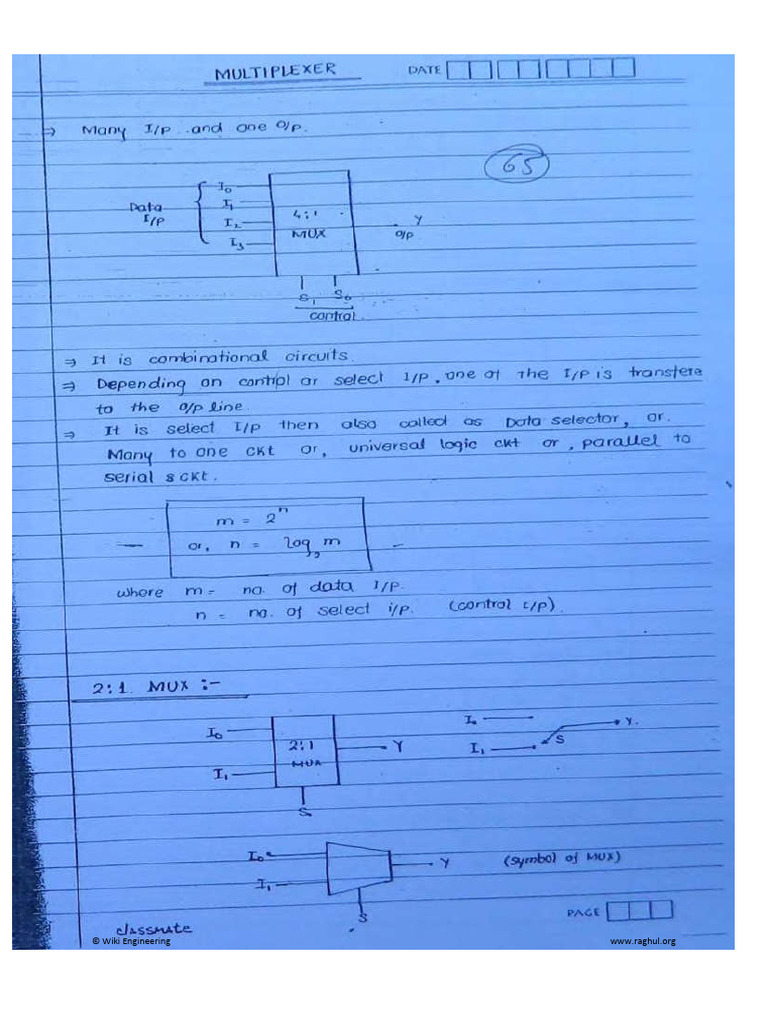 MULTIPLEXER DATE
⇒ Many I/P and one O/P.
65
Data I/P
I₀
I₁
I₂
I₃
4:1
MUX
Y
O/P
S₁ S₀
control
⇒ It is combinational circuits.
⇒ Depending on control or select I/P, one of the I/P is transfere
to the O/P line.
⇒ It is select I/P then also called as Data selector, or.
Many to one ckt or, universal logic ckt or, parallel to
serial s ckt.
m = 2ⁿ
or, n = log₂ m
where m = no. of data I/P.
n = no. of select i/p. (control i/p).
2:1 MUX :-
I₀
I₁
2:1
MUX
Y
S
I₀
I₁
S
Y.
I₀
I₁
Y
S
(symbol of MUX)
PAGE
classmate
© Wiki Engineering www.raghul.org